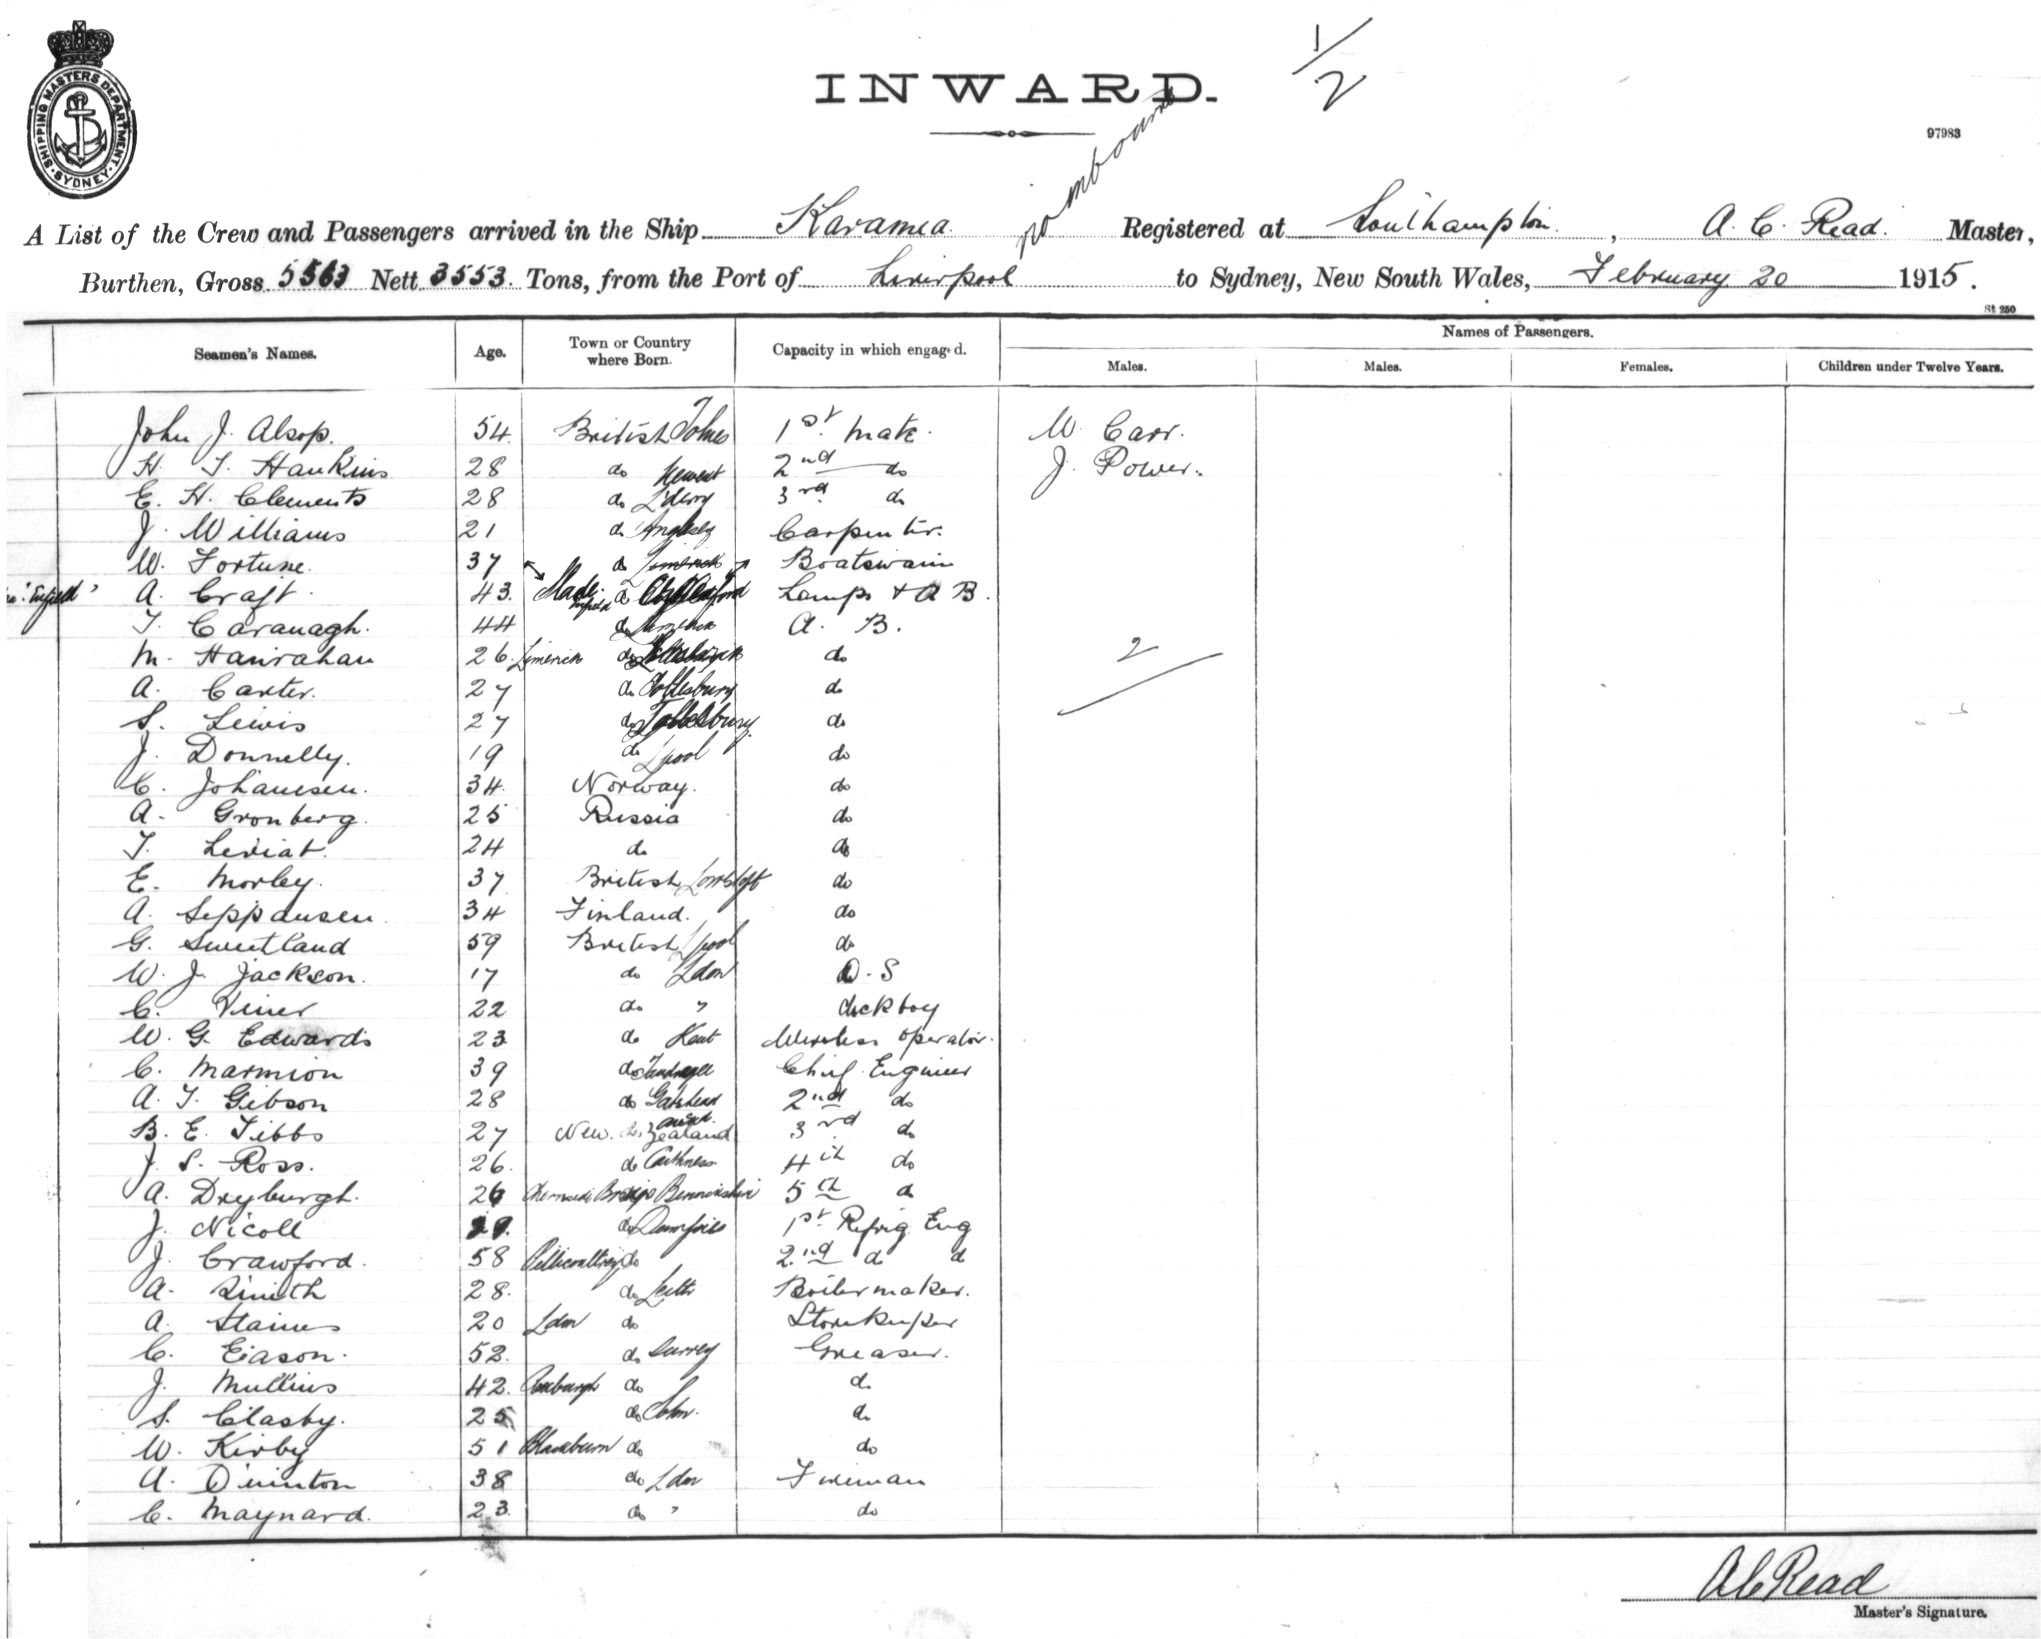 1/2
INWARD.
97983
SHIPPING MASTERS DEPARTMENT
SYDNEY
A List of the Crew and Passengers arrived in the Ship Karamea Registered at Southampton, A. C. Read. Master,
Burthen, Gross 5563 Nett 3553. Tons, from the Port of Liverpool to Sydney, New South Wales, February 20 1915.
St 250
Seamen's Names. Age. Town or Country where Born. Capacity in which engaged. Names of Passengers.
Males. Males. Females. Children under Twelve Years.
John J. Alsop. 54. British 1st mate. W. Carr.
H. T. Hankins 28 do Newent 2nd do J. Power.
E. H. Clements 28 do L'derry 3rd do
J. Williams 21 do Anglesey Carpenter.
W. Fortune. 37 do Limerick Boatswain
A. Craft. 43. do Lamps & A B.
T. Cavanagh. 44 do Limerick A. B.
M. Hanrahan 26. Limerick do do
2
A. Carter. 27 do Tollesbury do
S. Lewis 27 do Tollesbury do
J. Donnelly. 19 do L'pool do
C. Johansen. 34. Norway. do
A. Gronberg. 25 Russia do
T. Leviat. 24 do do
E. Morley. 37 British Lowestoft do
A. Seppansen. 34 Finland. do
G. Sweetland 59 British L'pool do
W. J. Jackson. 17 do Ldon O. S
C. Viner 22 do " deckboy
W. G. Edwards 23 do Kent Wireless operator.
C. Marmion 39 do Chief Engineer
A. T. Gibson 28 do Gateshead 2nd do
B. E. Tibbs 27 New Zealand 3rd do
J. S. Ross. 26. do Caithness 4th do
A. Dryburgh. 26 5th do
J. Nicoll do Dumfries 1st Refrig Eng
J. Crawford. 58 do 2nd d d
A. Smith 28. do Leith Boilermaker.
A. Staines 20 Ldon do Storekeeper
C. Eason. 52. do Surrey Greaser.
J. Mullins 42. do do
S. Clasby. 25 do do
W. Kirby 51 Blackburn do do
A. Quinton 38 do Ldon Fireman
C. Maynard. 23. do " do
A C Read
Master's Signature.